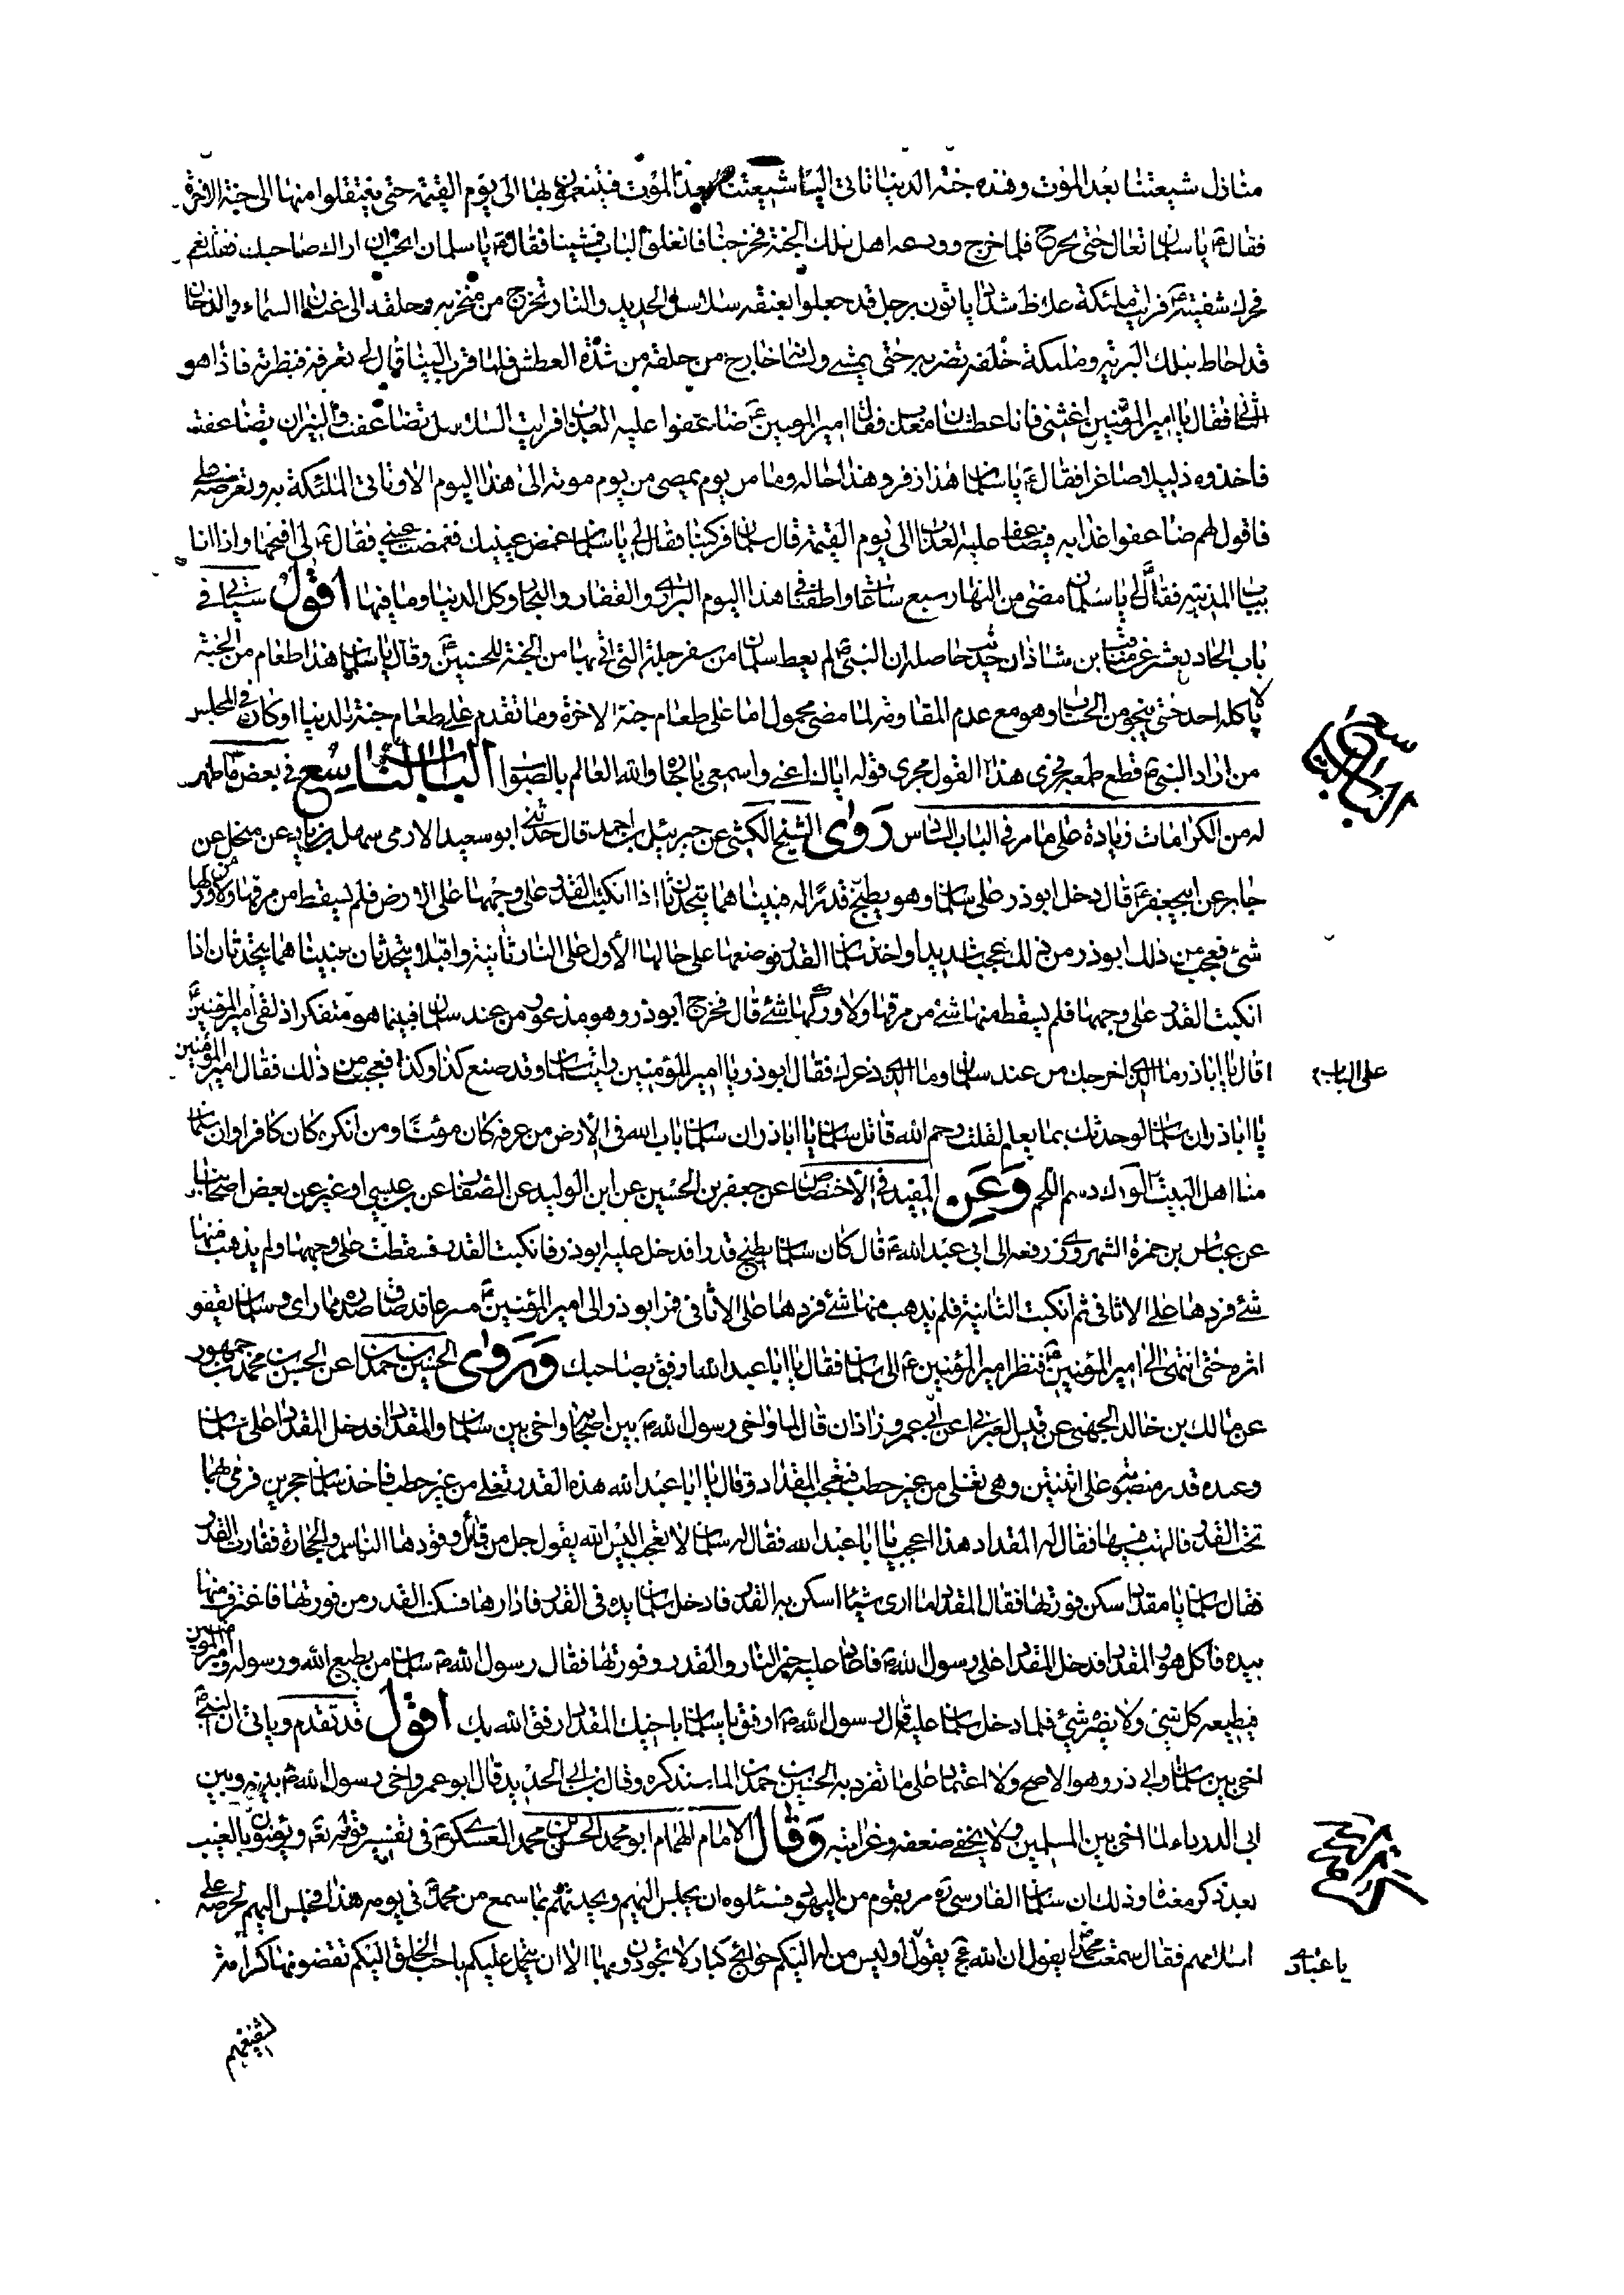 منازل شيعتنا بعد الموت وهذه جنة الدنيا تاتى اليها شيعتنا بعد الموت فيتنعمون بها الى يوم القيمة حتى ينتقلوا منها الى جنة الاخرة
فقال ع يا سلمان تعال حتى نخرج فلما خرج وودعه اهل تلك الجنة فخرجنا فانغلق الباب فمشينا فقال ع يا سلمان اتحب ان اراك صاحبك فقلت نعم
فحرك شفتيه فرايت ملئكة غلاظ شداد ياتون برجل قد جعلوا بعنقه سلاسل الحديد والنار تخرج من منخريه وحلقه الى عنان السماء والدخان
قد احاط بتلك البرية وملئكة خلفه تضربه حتى يمشى ولسانه خارج من حلقه من شدة العطش فلما قرب الينا قال لى تعرفه فنظرته فاذا هو
الثانى فقال يا امير المؤمنين اغثنى فانا عطشان معذب فقال امير المؤمنين ع ضاعفوا عليه العذاب فرايت السلاسل تضاعفت والنيران تضاعفت
فاخذوه ذليلا صاغرا فقال ع يا سلمان هذا زفر وهذا حاله وما من يوم يمضى من يوم موته الى هذا اليوم الا وتاتى الملئكة به وتعرضه على
فاقول لهم ضاعفوا عذابه فيضاعف عليه العذاب الى يوم القيمة قال سلمان فركبنا فقال لى يا سلمان غمض عينيك فغمضت عينى فقال ع لى افتحها واذا انا
بباب المدينة فقال لى يا سلمان مضى من النهار سبع ساعات وطفنا فى هذا اليوم البرارى والقفار والبحار وكل الدنيا وما فيها اقول سياتى فى
باب الحادى عشر عن مناقب ابن شاذان حديث حاصله ان النبى ص لم يعط سلمان من سفرجلة التى اتى بها من الجنة للحسنين ع وقال يا سلمان هذا طعام من الجنة
لا ياكله احد حتى ينجو من الحساب وهو مع عدم المقاومة لما مضى محمول اما على طعام جنة الاخرة وما تقدم على طعام جنة الدنيا او كان فى المجلس
من اراد النبى ص قطع طمعه فجرى هذا القول مجرى قوله اياك اعنى واسمعى يا جاره والله العالم بالصواب الباب التاسع فى بعض ما ظهر
له من الكرامات زيادة على ما مر فى الباب السادس روى الشيخ الكشى عن جبرئيل بن احمد قال حدثنى ابو سعيد الادمى سهل بن زياد عن منخل عن
جابر عن ابى جعفر ع قال دخل ابوذر على سلمان وهو يطبخ قدرا له فبينا هما يتحدثان اذا انكبت القدر على وجهها على الارض فلم يسقط من مرقها ولا من ودكها
شئ فعجب من ذلك ابوذر من ذلك عجبا شديدا واخذ سلمان القدر فوضعها على حالها الاول على النار ثانية واقبلا يتحدثان فبينا هما يتحدثان اذا
انكبت القدر على وجهها فلم يسقط منها شئ من مرقها ولا ودكها شئ قال فخرج ابوذر وهو مذعور من عند سلمان فبينما هو متفكر اذ لقى امير المؤمنين ع
على الباب
قال يا اباذر ما الذى اخرجك من عند سلمان وما الذى ذعرك فقال ابوذر يا امير المؤمنين رايت سلمان وقد صنع كذا وكذا فعجبت من ذلك فقال امير المؤمنين
يا اباذر ان سلمان لو حدثك بما يعلم لقلت رحم الله قاتل سلمان يا اباذر ان سلمان باب الله فى الارض من عرفه كان مؤمنا ومن انكره كان كافرا وان سلمان
منا اهل البيت وعن المفيد فى الاختصاص عن جعفر بن الحسين عن ابن الوليد عن الصفار عن ابن عيسى او غيره عن بعض اصحابنا
عن عباس بن حمزة الشهرزورى رفعه الى ابى عبد الله ع قال كان سلمان يطبخ قدرا فدخل عليه ابوذر فانكبت القدر فسقطت على وجهها ولم يذهب منها
شئ فردها على الاثافى ثم انكبت الثانية فلم يذهب منها شئ فردها على الاثافى فمر ابوذر الى امير المؤمنين ع مسرعا قد ضاق صدره مما راى وسلمان يقفو
اثره حتى انتهى الى امير المؤمنين ع فنظر امير المؤمنين ع الى سلمان فقال يا ابا عبد الله ارفق بصاحبك وروى الحسين بن حمدان عن الحسن بن محمد بن جمهور
عن مالك بن خالد الجهنى عن عن ابى عمر زاذان قال لما واخى رسول الله ص بين اصحابه واخى بين سلمان والمقداد فدخل المقداد على سلمان
وعنده قدر منصوبة على اثنتين وهى تغلى من غير حطب فتعجب المقداد وقال يا ابا عبد الله هذه القدر تغلى من غير حطب فاخذ سلمان حجرين فرمى بهما
تحت القدر فالتهب فيها فقال له المقداد هذا اعجب يا ابا عبد الله فقال له سلمان لا تعجب اليس الله يقول جل من قائل وقودها الناس والحجارة ففارت القدر
فقال سلمان يا مقداد سكن فورتها فقال المقداد ما ارى شيئا اسكن به القدر فادخل سلمان يده فى القدر فادارها فسكن القدر من فورتها فاغترف منها
بيده فاكل هو والمقداد فدخل المقداد على رسول الله ص فاعاد عليه خبر النار والقدر وفورتها فقال رسول الله ص سلمان من يطيع الله ورسوله وامير المؤمنين
فيطيعه كل شئ ولا يضره شئ فلما دخل سلمان عليه قال رسول الله ص ارفق يا سلمان باخيك المقداد رفق الله بك اقول قد تقدم وياتى ان النبى ص
اخى بين سلمان وابى ذر وهو الاصح ولا اعتماد على ما تفرد به الحسين بن حمدان لما سنذكره وقال ابن ابى الحديد قال ابو عمر واخى رسول الله ص بينه وبين
ابى الدرداء لما اخى بين المسلمين ولا يخفى ضعفه وغرابته وقال الامام الهمام ابو محمد الحسن بن محمد العسكرى ع فى تفسير قوله تع ويؤمنون بالغيب
بعد ذكر معناه وذلك ان سلمان الفارسى ره مر بقوم من اليهود فسئلوه ان يجلس اليهم ويحدثهم بما سمع من محمد ص فى يومه هذا فجلس اليهم لحرصه على
اسلامهم فقال سمعت محمدا ص يقول ان الله عج يقول اوليس من له اليكم حوائج كبار لا تجودون بها الا ان يتحمل عليكم باحب الخلق اليكم تقضونها كرامة
يا عبادى
لشفيعهم